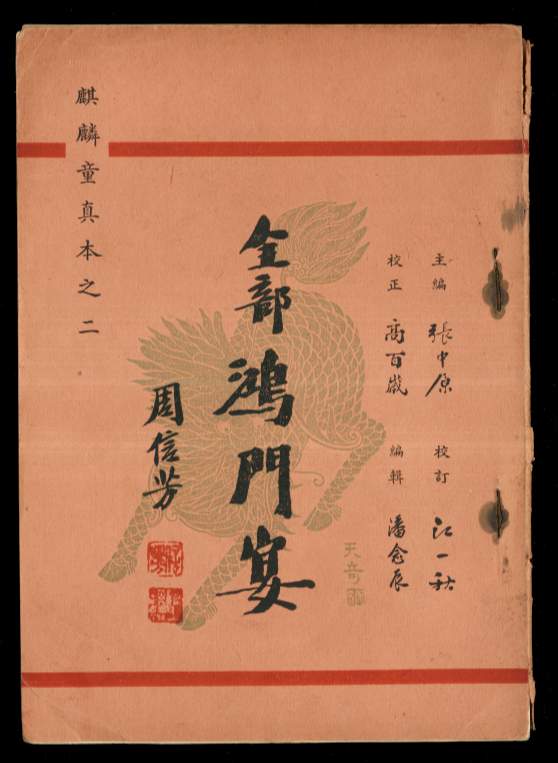 主編 張中原 校訂 江一秋
校正 高百歲 編輯 潘念辰
全部鴻門宴
周信芳
麒麟童真本之二
天奇